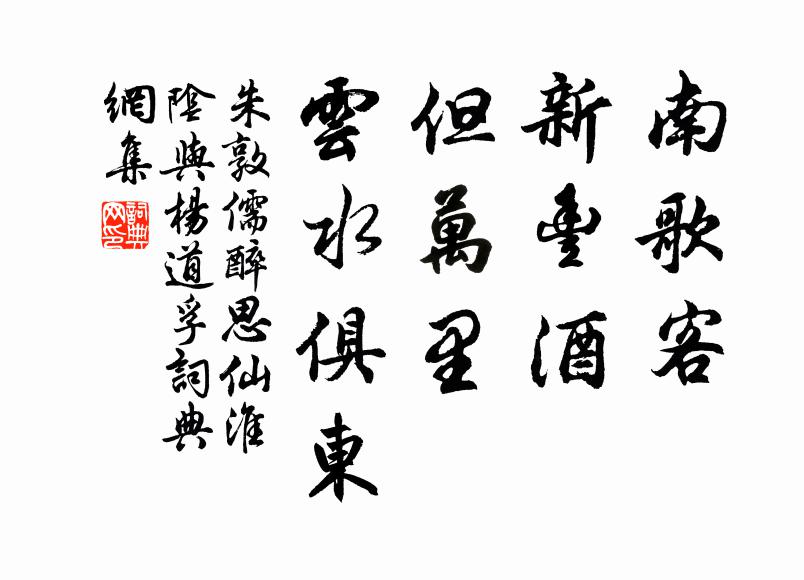 南歌客
新豐酒
但萬里
雲水俱東
朱敦儒醉思仙淮
陰與楊道孚詞典
網集
詞典網印